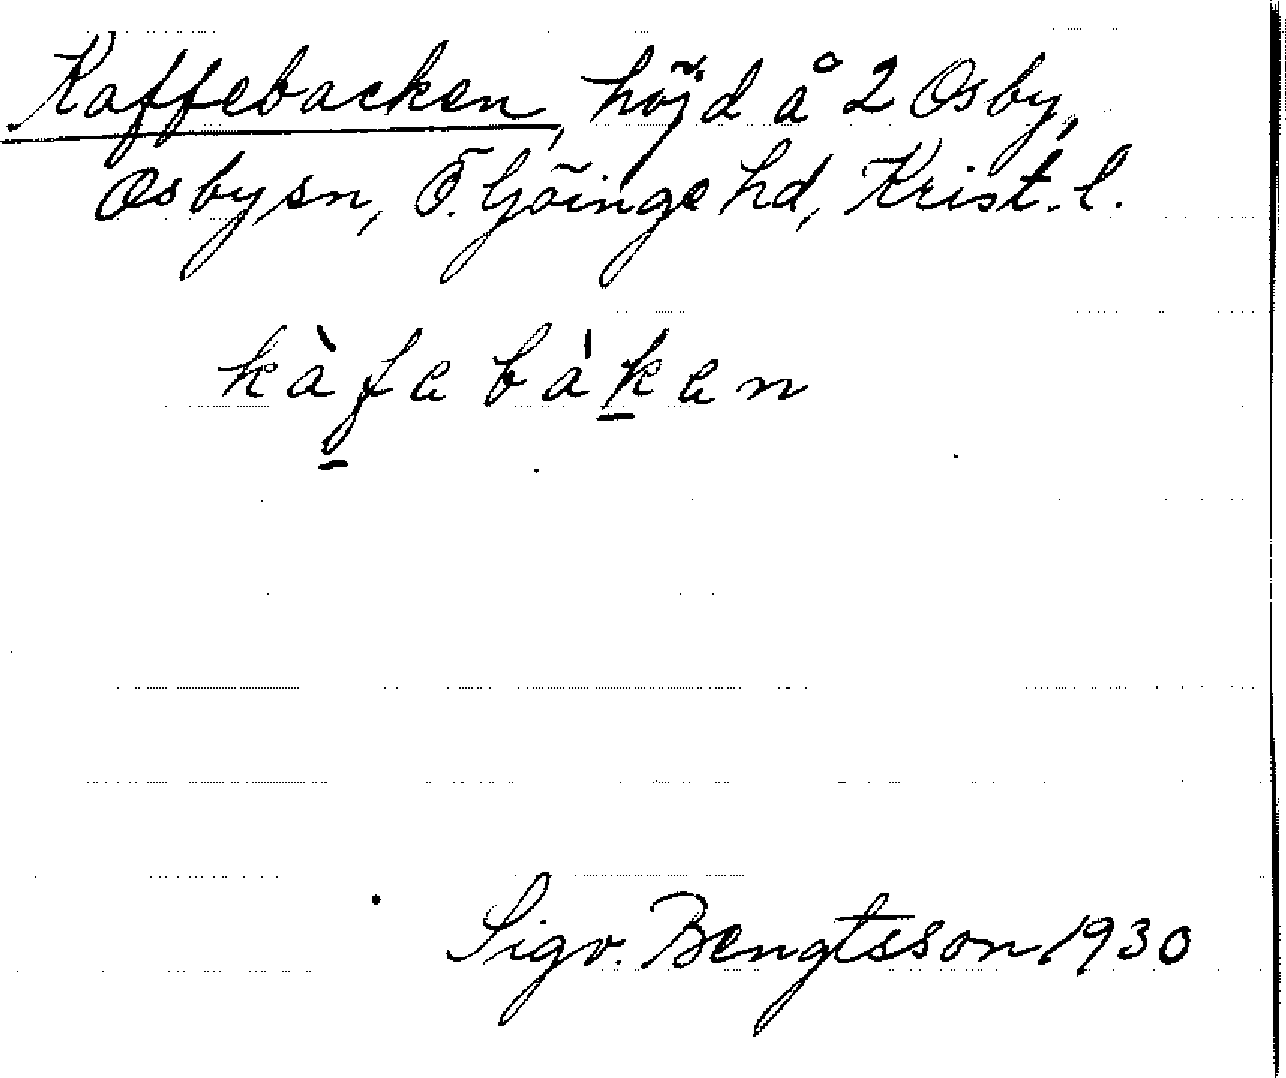 Kaffebacken, höjd å 2 Osby,
Osby sn, Ö. Göinge hd, Krist. l.
kàfebáken
Sigv. Bengtsson 1930